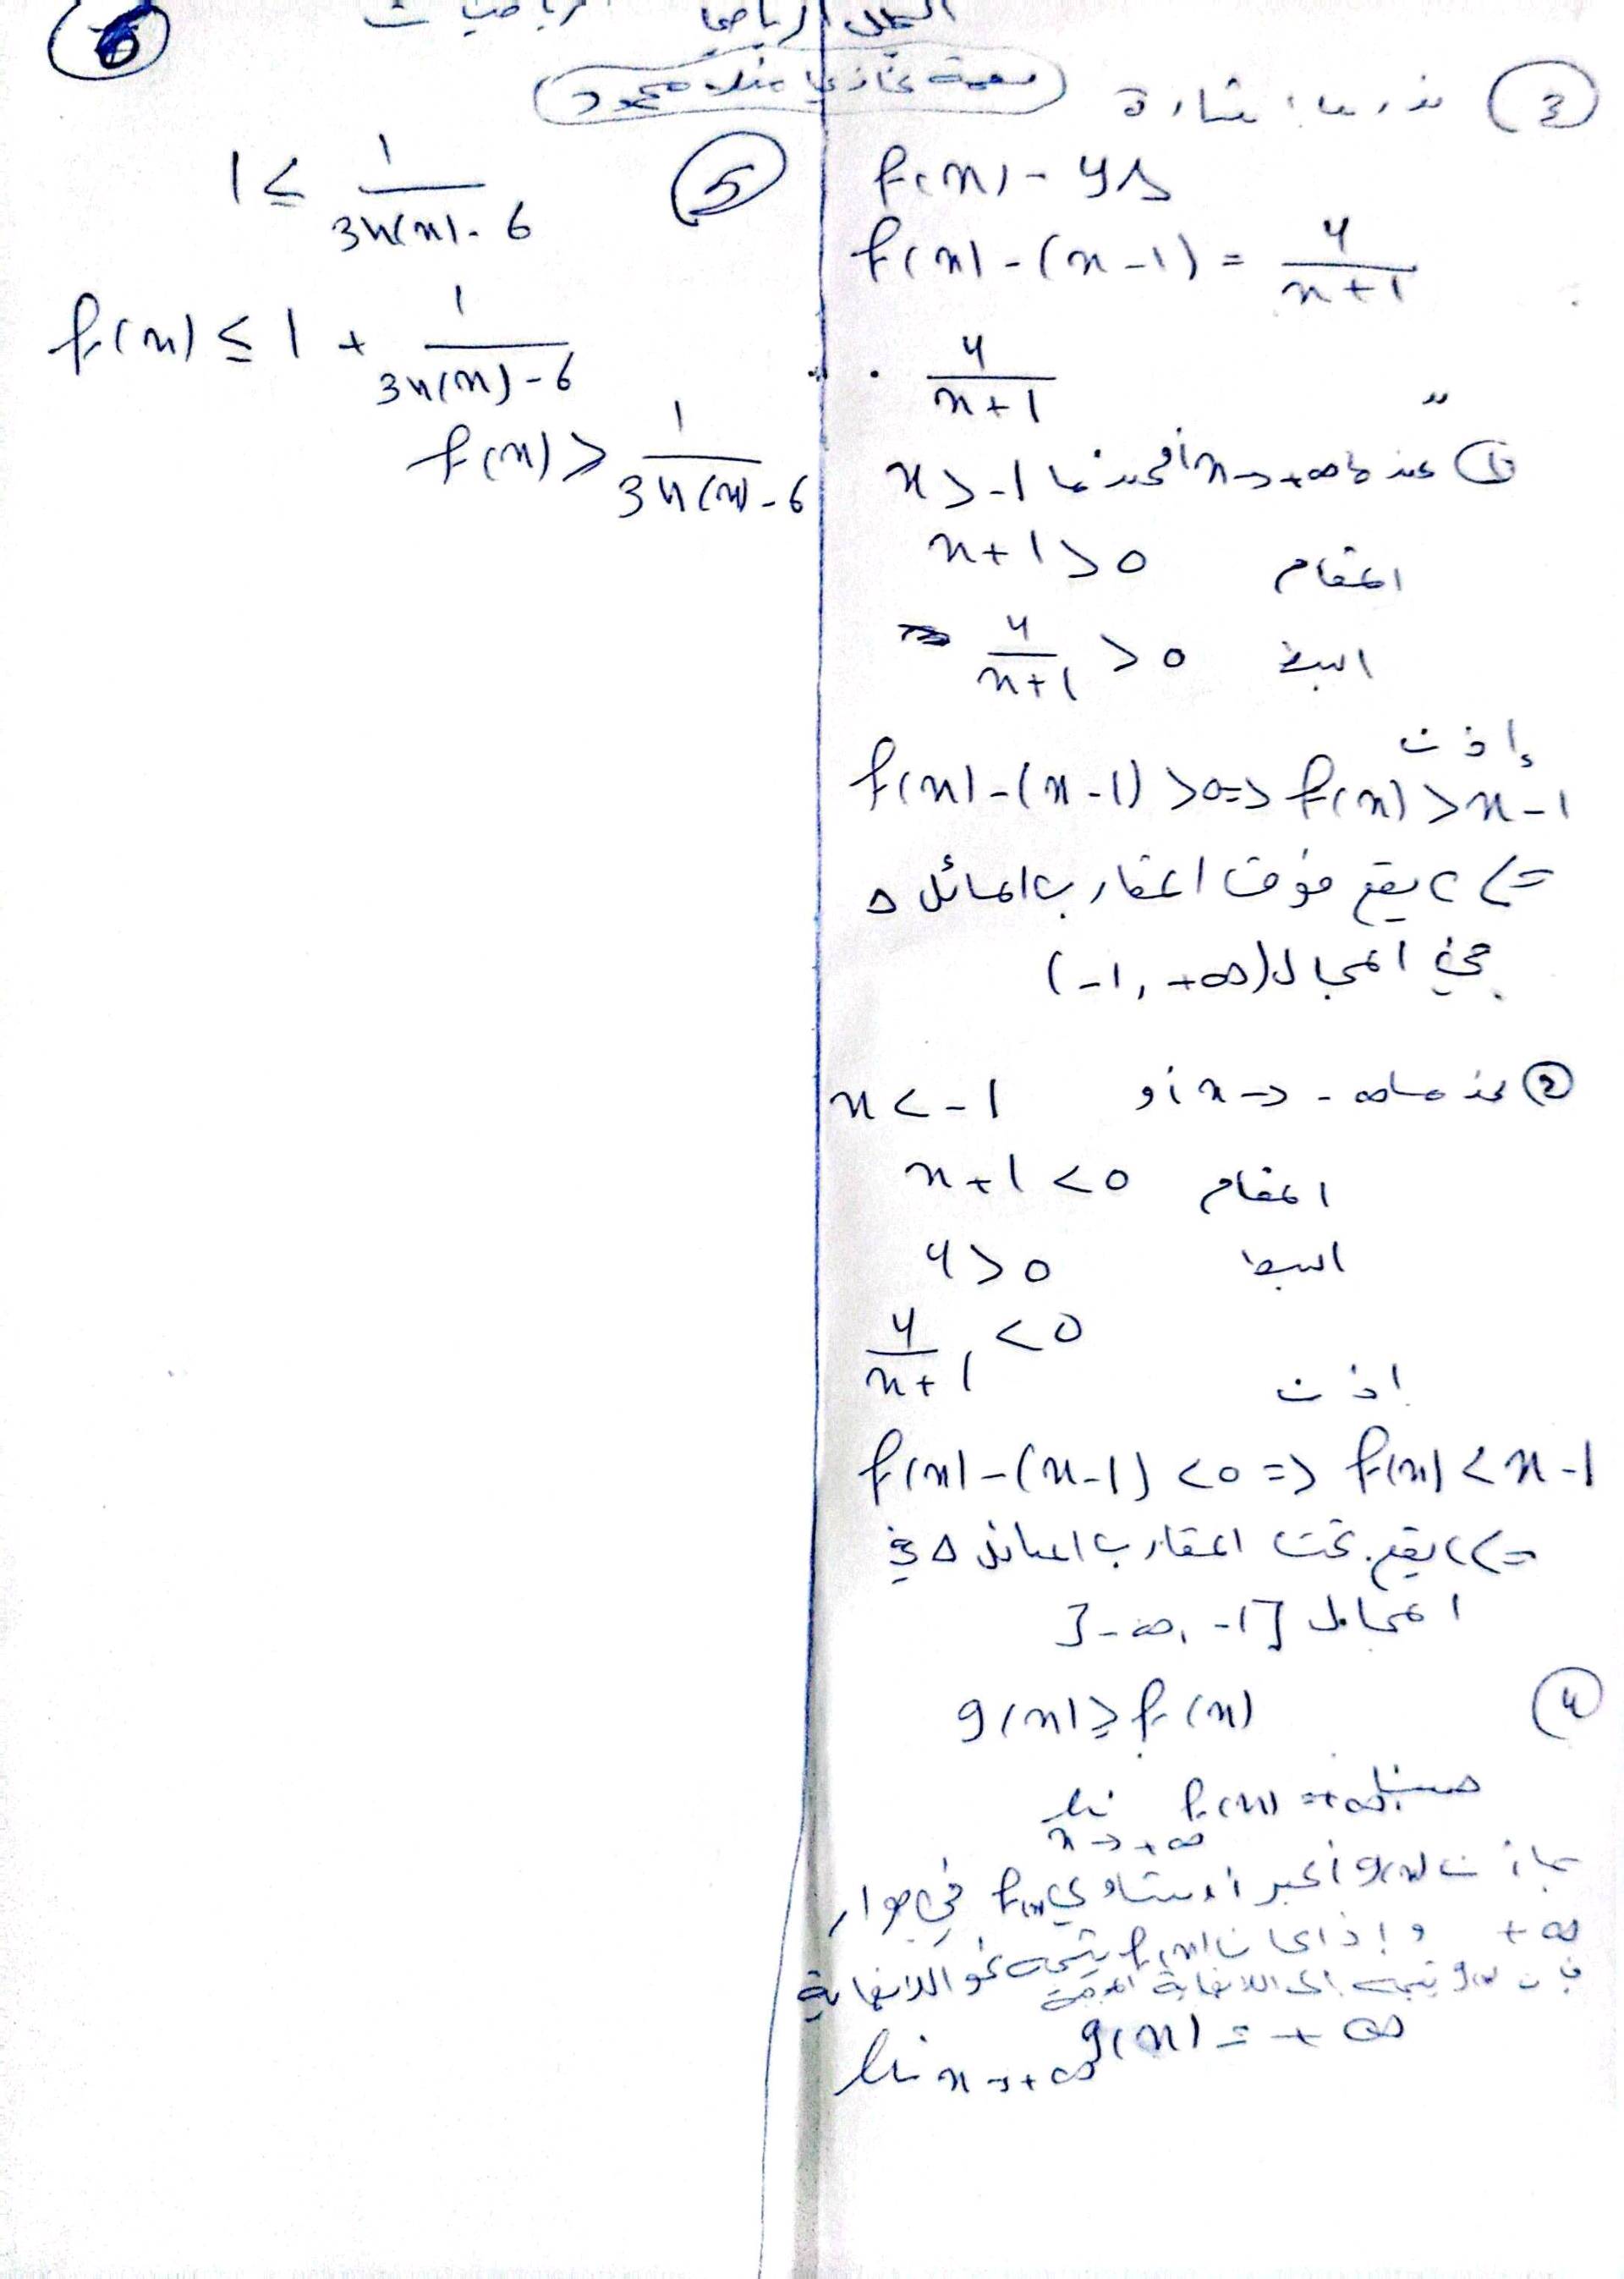 6
③ ندرس إشارة
f(x) - yΔ
f(x) - (x - 1) = 4/(x+1)
4/(x+1)
① عندما x→+∞ أو عندما x > -1
المقام x + 1 > 0
البسط 4/(x+1) > 0
إذن
f(x) - (x - 1) > 0 => f(x) > x - 1
=> C يقع فوق المقارب المائل Δ
في المجال (-1, +∞)
② عندما x → -∞ أو x < -1
المقام x + 1 < 0
البسط 4 > 0
4/(x+1) < 0
اذن
f(x) - (x - 1) < 0 => f(x) < x - 1
=> C يقع تحت المقارب المائل Δ في
المجال ]-∞, -1[
④ g(x) ≥ f(x)
lim x→+∞ f(x) = +∞
بما أن g(x) أكبر أو تساوي f(x) في جوار
+∞ وإذا كان f(x) يتجه نحو اللانهاية
فإن g(x) يتجه إلى اللانهاية الموجبة
lim x→+∞ g(x) = +∞
⑤ 1 ≤ 1/(3h(x) - 6)
f(x) ≤ 1 + 1/(3h(x) - 6)
f(x) > 1/(3h(x) - 6)